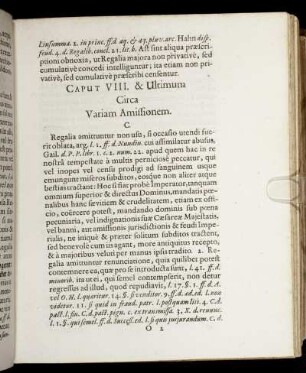 Einsumma. 2. in princ. ff. d. aq. & aq. pluv. arc. Hahn disp.
feud. 4. d. Regalib. concl. 21. lit. b. Ast sint aliqua præscri-
ptioni obnoxia, ut Regalia majora non privativè, sed
cumulativè concedi intelliguntur; ita etiam non pri-
vativè, sed cumulativè præscribi censentur.
CAPUT VIII. & Ultimum
Circa
Variam Amissionem.
C
Regalia amittuntur non usu, si occasio utendi fue-
rit oblata, arg. l. 1. ff. d. Nundin. cui assimilatur abusus,
Gail. d. P. P. libr. 1. c. 2. num. 22. apud quem hac in re
nostra tempestate à multis perniciosè peccatur, qui
vel inopes vel censu prodigi ad sanguinem usque
emungunt miseros subditos, eosque non aliter atque
bestias tractant: Hoc si sciret probè Imperator, tanquam
omnium superior & directus Dominus, mandatis poe-
nalibus hanc sævitiem & crudelitatem, etiam ex offi-
cio, coërcere potest, mandando dominis sub poena
pecuniaria, vel indignationis suæ Cæsareæ Majestatis,
vel banni, aut amissionis jurisdictionis & feudi Impe-
rialis, ne iniquè & præter solitum subditos tractent,
sed benevolè cum iis agant, more antiquitus recepto,
& à majoribus veluti per manus ipsa tradito. 2. Re-
galia amittuntur renunciatione, quia quilibet potest
contemnere ea, quæ pro se introducta sunt, l. 41. ff. d.
minorib. ita uti, qui semel contempsit, non detur
regressus ad illud, quod repudiavit, l. 17. §. 1. ff. d. A
vel O. H. l. queritur. 14. §. si venditor. 9. ff. d. æd. ed. l. non
videtur. 11. si quid in fraud. patr. l. postquam liti. 4. C. d.
pact. l. fin. C. d. pact. pign. c. ex transmissa. 3. X. d. renunc.
l. 1. §. qui semel. ff. d. success. ed. l. si quis jusjurandum. C. d.
O 2